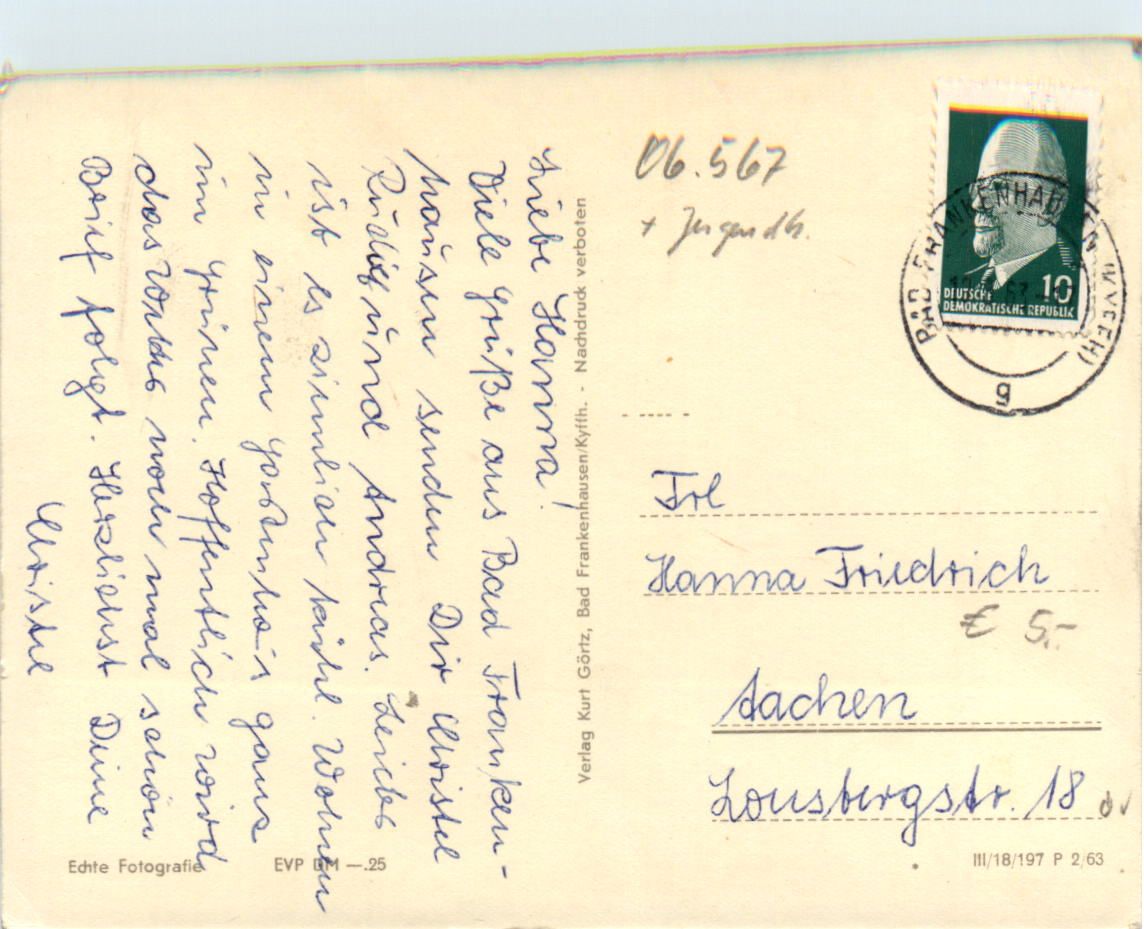 Liebe Hanna!
Viele Grüße aus Bad Franken-
hausen senden Dir Christel
Rüdig und Andreas. Leider
ist es ziemlich kühl. Wohnen
in einem Gartenhaus ganz
im Grünen. Hoffentlich wird
das Wetter noch mal schön
Brief folgt. Herzlichst Deine
Christel
Verlag Kurt Görtz, Bad Frankenhausen/Kyffh. - Nachdruck verboten
Echte Fotografie
EVP DM —.25
06.567
+ Jugendh.
10
DEUTSCHE
DEMOKRATISCHE REPUBLIK
BAD FRANKENHAUSEN (KYFFH)
g
Frl
Hanna Friedrich
€ 5,-
Aachen
Lousbergstr. 18
III/18/197 P 2/63